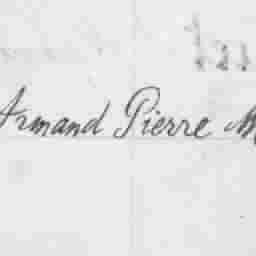 Armand Pierre